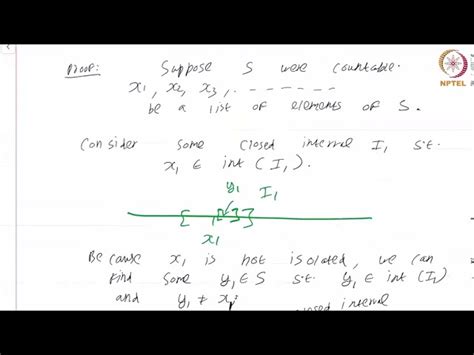 Proof: Suppose S were countable.
x1, x2, x3, - - - - - - - -
be a list of elements of S.
NPTEL
Consider some closed interval I1 s.t.
x1 ∈ int (I1).
y1 I1
x1
Because x1 is not isolated, we can
find some y1 ∈ S s.t. y1 ∈ int (I1)
and y1 ≠ x1.
closed interval